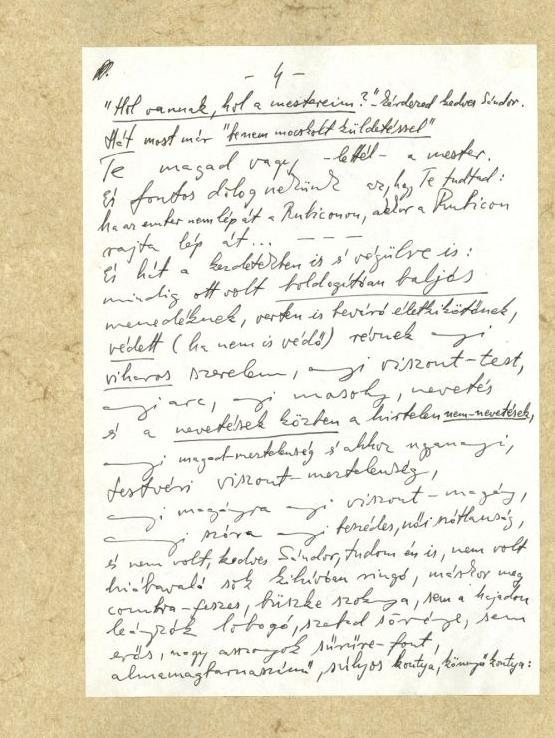 - 4 -
"Hol vannak, hol a mestereim?" - kérdezed kedves Sándor.
Hát most már "be nem mocskolt küldetéssel"
Te magad vagy - lettél - a mester.
És fontos dolog nekünk az, hogy Te tudtad:
ha az ember nem lép át a Rubiconon, akkor a Rubicon
rajta lép át... - - -
És hát a kezdetekben is s végülve is:
mindig ott volt boldogítóan baljós
menedéknek, verten is beváró életkikötőnek,
védett (ha nem is védő) révnek a
viharos szerelem, annyi viszont-test,
annyi arc, annyi mosoly, nevetés
és a nevetések közben a hirtelen nem-nevetések,
annyi magad-meztelenség s ahhoz ugyanannyi,
testvéri viszont-meztelenség,
annyi magányra annyi viszont-magány,
annyi szóra annyi beszédes, női szótlanság,
és nem volt, kedves Sándor, tudom én is, nem volt
hiábavaló sok kihívóan ringó, máskor meg
combra-feszes, büszke szoknya, sem a hajadon
leányzók lobogó, szabad sörénye, sem
erős, nagy asszonyok sűrűre-font,
súlyos kontya, könnyű kontya: